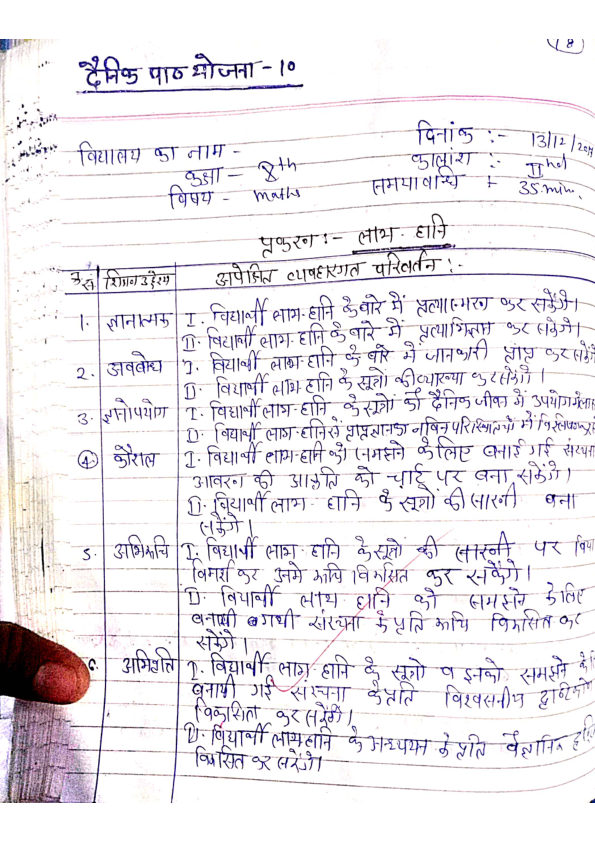 8
दैनिक पाठ योजना - 10
विद्यालय का नाम -
दिनांक :- 13/12/
कक्षा - 8th
कालांश :- IInd
विषय - maths
समयावधि :- 35 min.
प्रकरण :- लाभ-हानि
क्र.सं. शिक्षण उद्देश्य अपेक्षित व्यवहारगत परिवर्तन :-
1. ज्ञानात्मक I. विद्यार्थी लाभ-हानि के बारे में प्रत्यास्मरण कर सकेंगे।
II. विद्यार्थी लाभ-हानि के बारे में प्रत्याभिज्ञान कर सकेंगे।
2. अवबोध I. विद्यार्थी लाभ-हानि के बारे में जानकारी प्राप्त कर सकेंगे
II. विद्यार्थी लाभ-हानि के सूत्रों की व्याख्या कर सकेंगे।
3. ज्ञानोपयोग I. विद्यार्थी लाभ-हानि के सूत्रों को दैनिक जीवन में उपयोग
II. विद्यार्थी लाभ-हानि से प्राप्त ज्ञान का नविन परिस्थितियों में विश्लेषण
4. कौशल I. विद्यार्थी लाभ-हानि को समझने के लिए बनाई गई संरचना
आवरन की आकृति को चार्ट पर बना सकेंगे।
II. विद्यार्थी लाभ-हानि के सूत्रों की सारनी बना
सकेंगे।
5. अभिरूचि I. विद्यार्थी लाभ-हानि के सूत्रों की सारनी पर विचार
विमर्श कर उनमे रूचि विकसित कर सकेंगे।
II. विद्यार्थी लाभ हानि को समझने के लिए
बनायी गयी संरचना के प्रति रूचि विकसित कर
सकेंगे।
6. अभिवृति I. विद्यार्थी लाभ-हानि के सूत्रों व इनको समझने के
बनायी गई संरचना के प्रति विश्वसनीय
विकसित कर सकेंगे।
II. विद्यार्थी लाभ हानि के अध्ययन के प्रति वैज्ञानिक
विकसित कर सकेंगे।